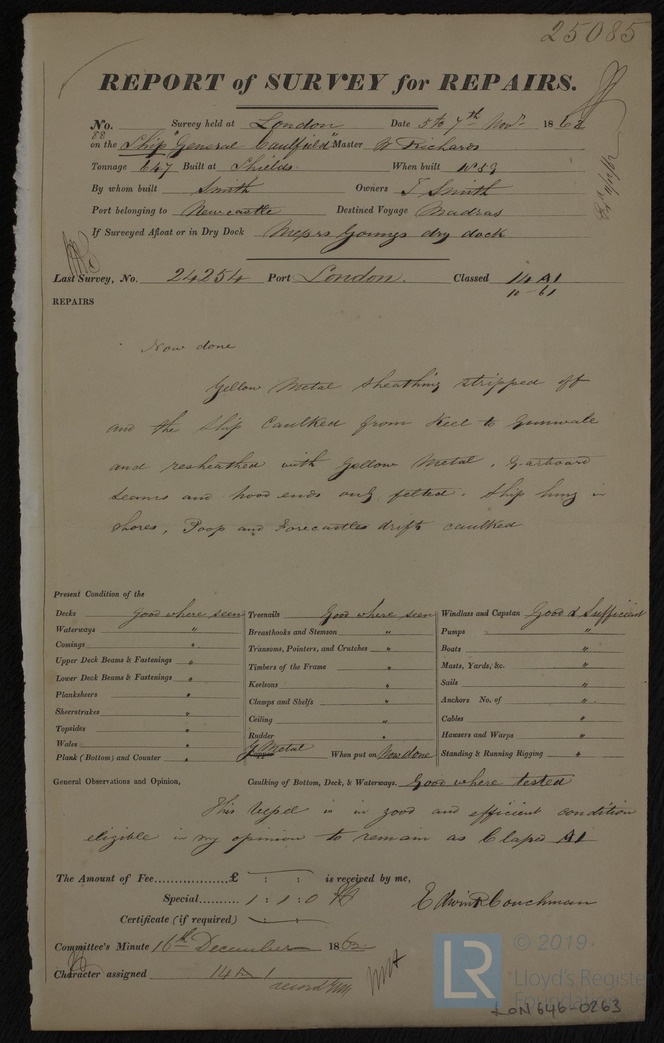 25085
REPORT of SURVEY for REPAIRS.
No. Survey held at London Date 5 to 7th Novr. 1862
88
on the Ship "General Caulfield" Master W Richards
Tonnage 647 Built at Shields When built 1859
By whom built Smith Owners T Smith
Port belonging to Newcastle Destined Voyage Madras
If Surveyed Afloat or in Dry Dock Messrs Youngs dry dock
Last Survey, No. 24254 Port London. Classed 14 A1
10-61
REPAIRS
Now done
Yellow Metal sheathing stripped off
and the Ship Caulked from Keel to Gunwale
and resheathed with Yellow Metal. Garboard
Seams and hood ends only felted. Ship hung in
Shores, Poop and Forecastles drifts caulked
Present Condition of the
Decks good where seen Treenails Good where seen Windlass and Capstan Good & Sufficient
Waterways " Breasthooks and Stemson " Pumps "
Comings " Transoms, Pointers, and Crutches " Boats "
Upper Deck Beams & Fastenings " Timbers of the Frame " Masts, Yards, &c. "
Lower Deck Beams & Fastenings " Keelsons " Sails "
Planksheers " Clamps and Shelfs " Anchors No. of "
Sheerstrakes " Ceiling " Cables "
Topsides " Rudder " Hawsers and Warps "
Wales " Y Metal When put on Now done Standing & Running Rigging "
Plank (Bottom) and Counter "
General Observations and Opinion, Caulking of Bottom, Deck, & Waterways. Good where tested
This Vessel is in good and efficient condition
eligible in my opinion to remain as Classed A1
The Amount of Fee..................£ : : is received by me,
Special.......... 1 : 1 : 0
Edwin R Couchman
Certificate (if required)
Committee's Minute 16th December 1862
Character assigned 14 A 1
© 2019
LR
Lloyd's Register
Foundation
LON646-0263